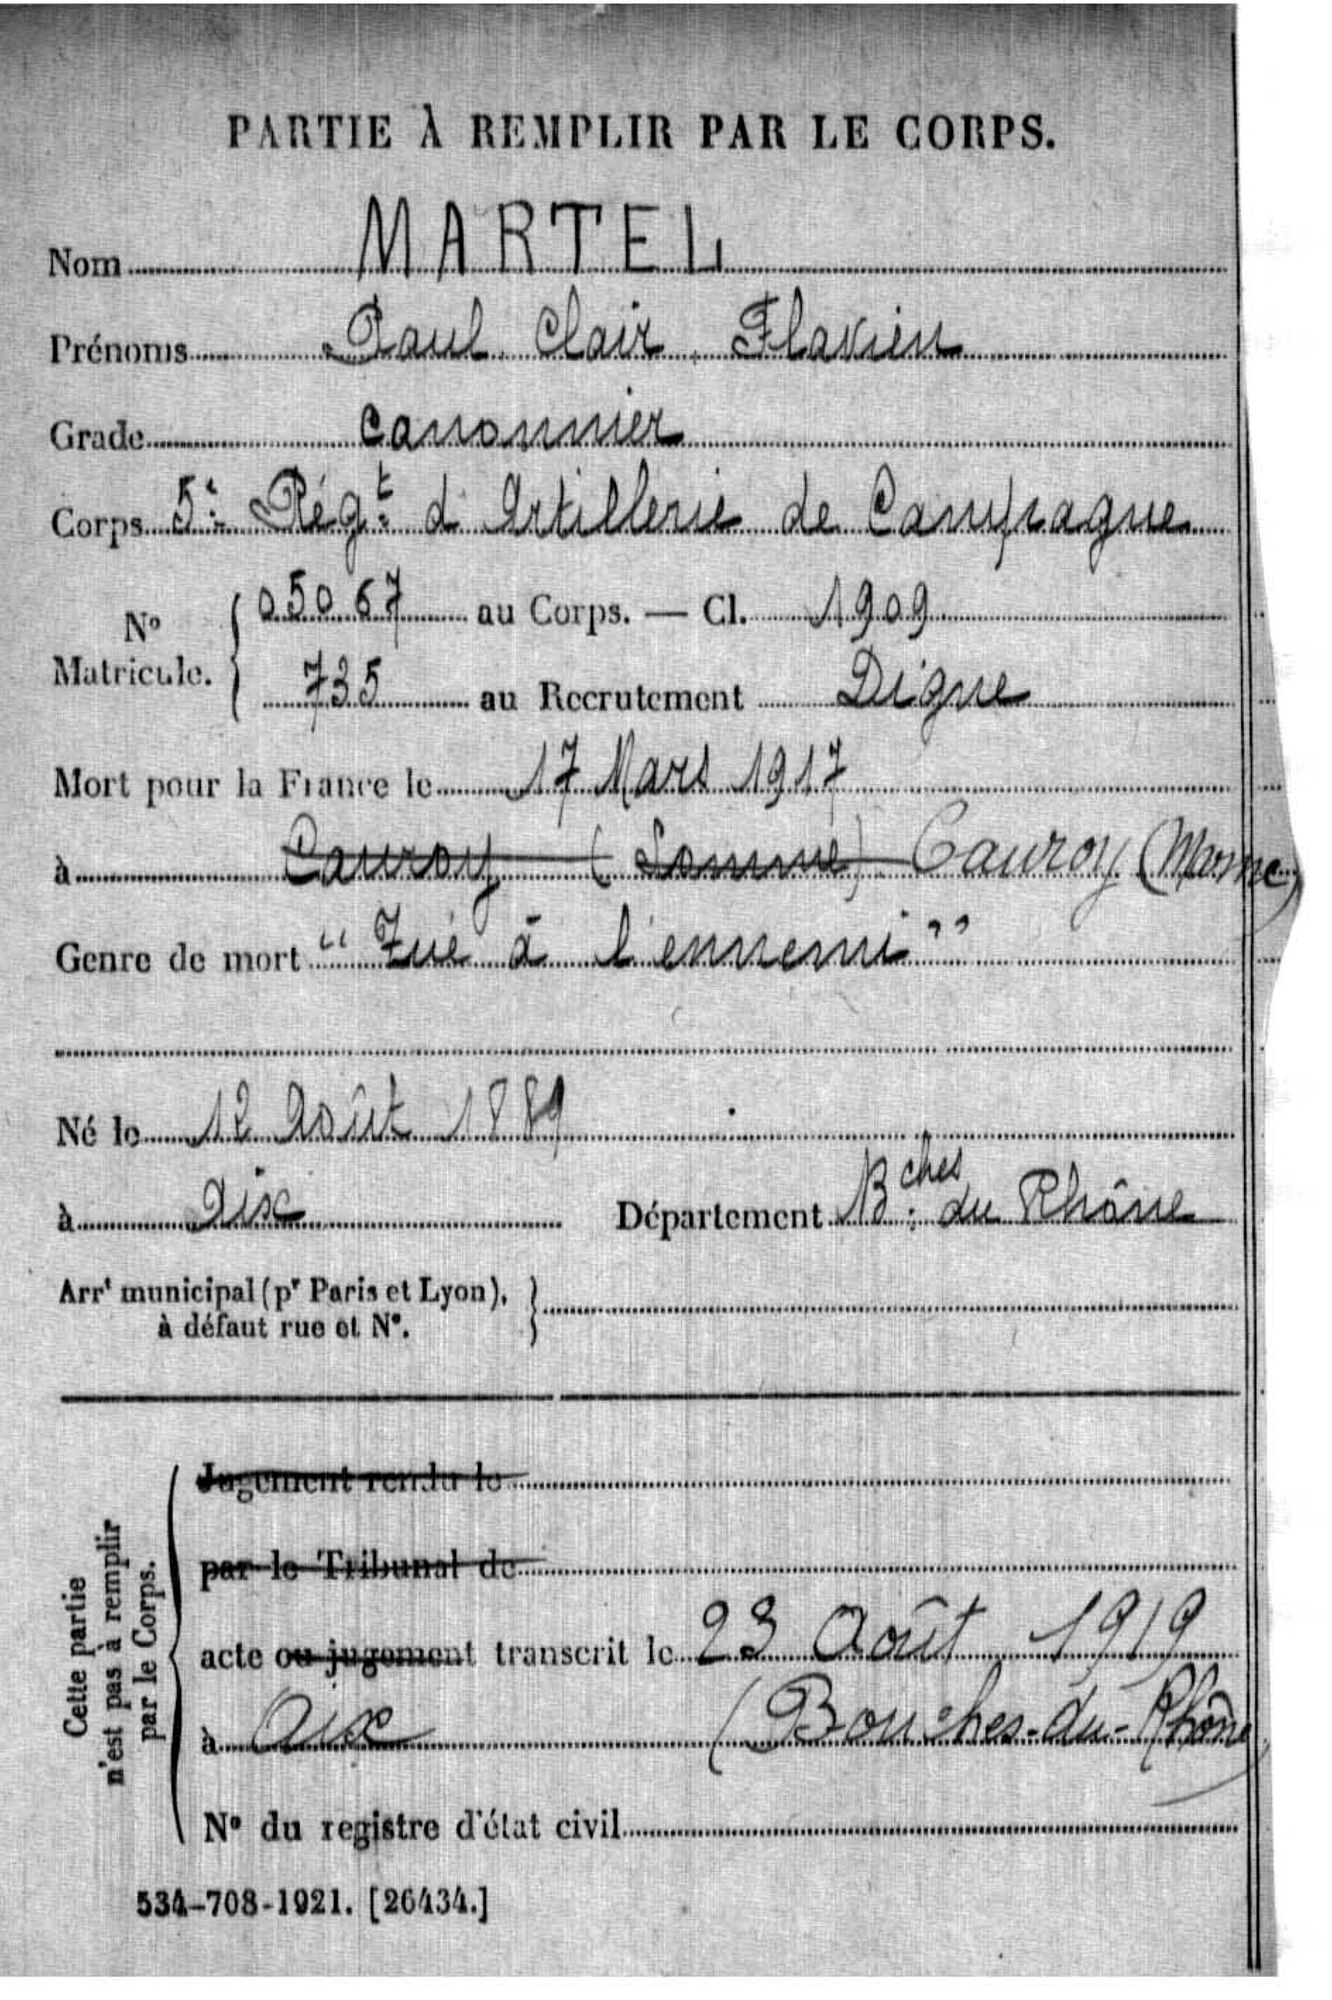 PARTIE À REMPLIR PAR LE CORPS.
Nom MARTEL
Prénoms Paul Clair Flavien
Grade Canonnier
Corps 5e Régt d'Artillerie de Campagne
No Matricule. 05067 au Corps. — Cl. 1909
735 au Recrutement Digne
Mort pour la France le 17 Mars 1917
à Cauroy (Somme) Cauroy (Marne)
Genre de mort "Tué à l'ennemi"
Né le 12 Août 1889
à Aix Département Bches du Rhône
Arrt municipal (pr Paris et Lyon),
à défaut rue et No.
Cette partie
n'est pas à remplir
par le Corps.
Jugement rendu le
par le Tribunal de
acte ou jugement transcrit le 23 Août 1919
à Aix (Bouches-du-Rhône)
No du registre d'état civil
534-708-1921. [26434.]